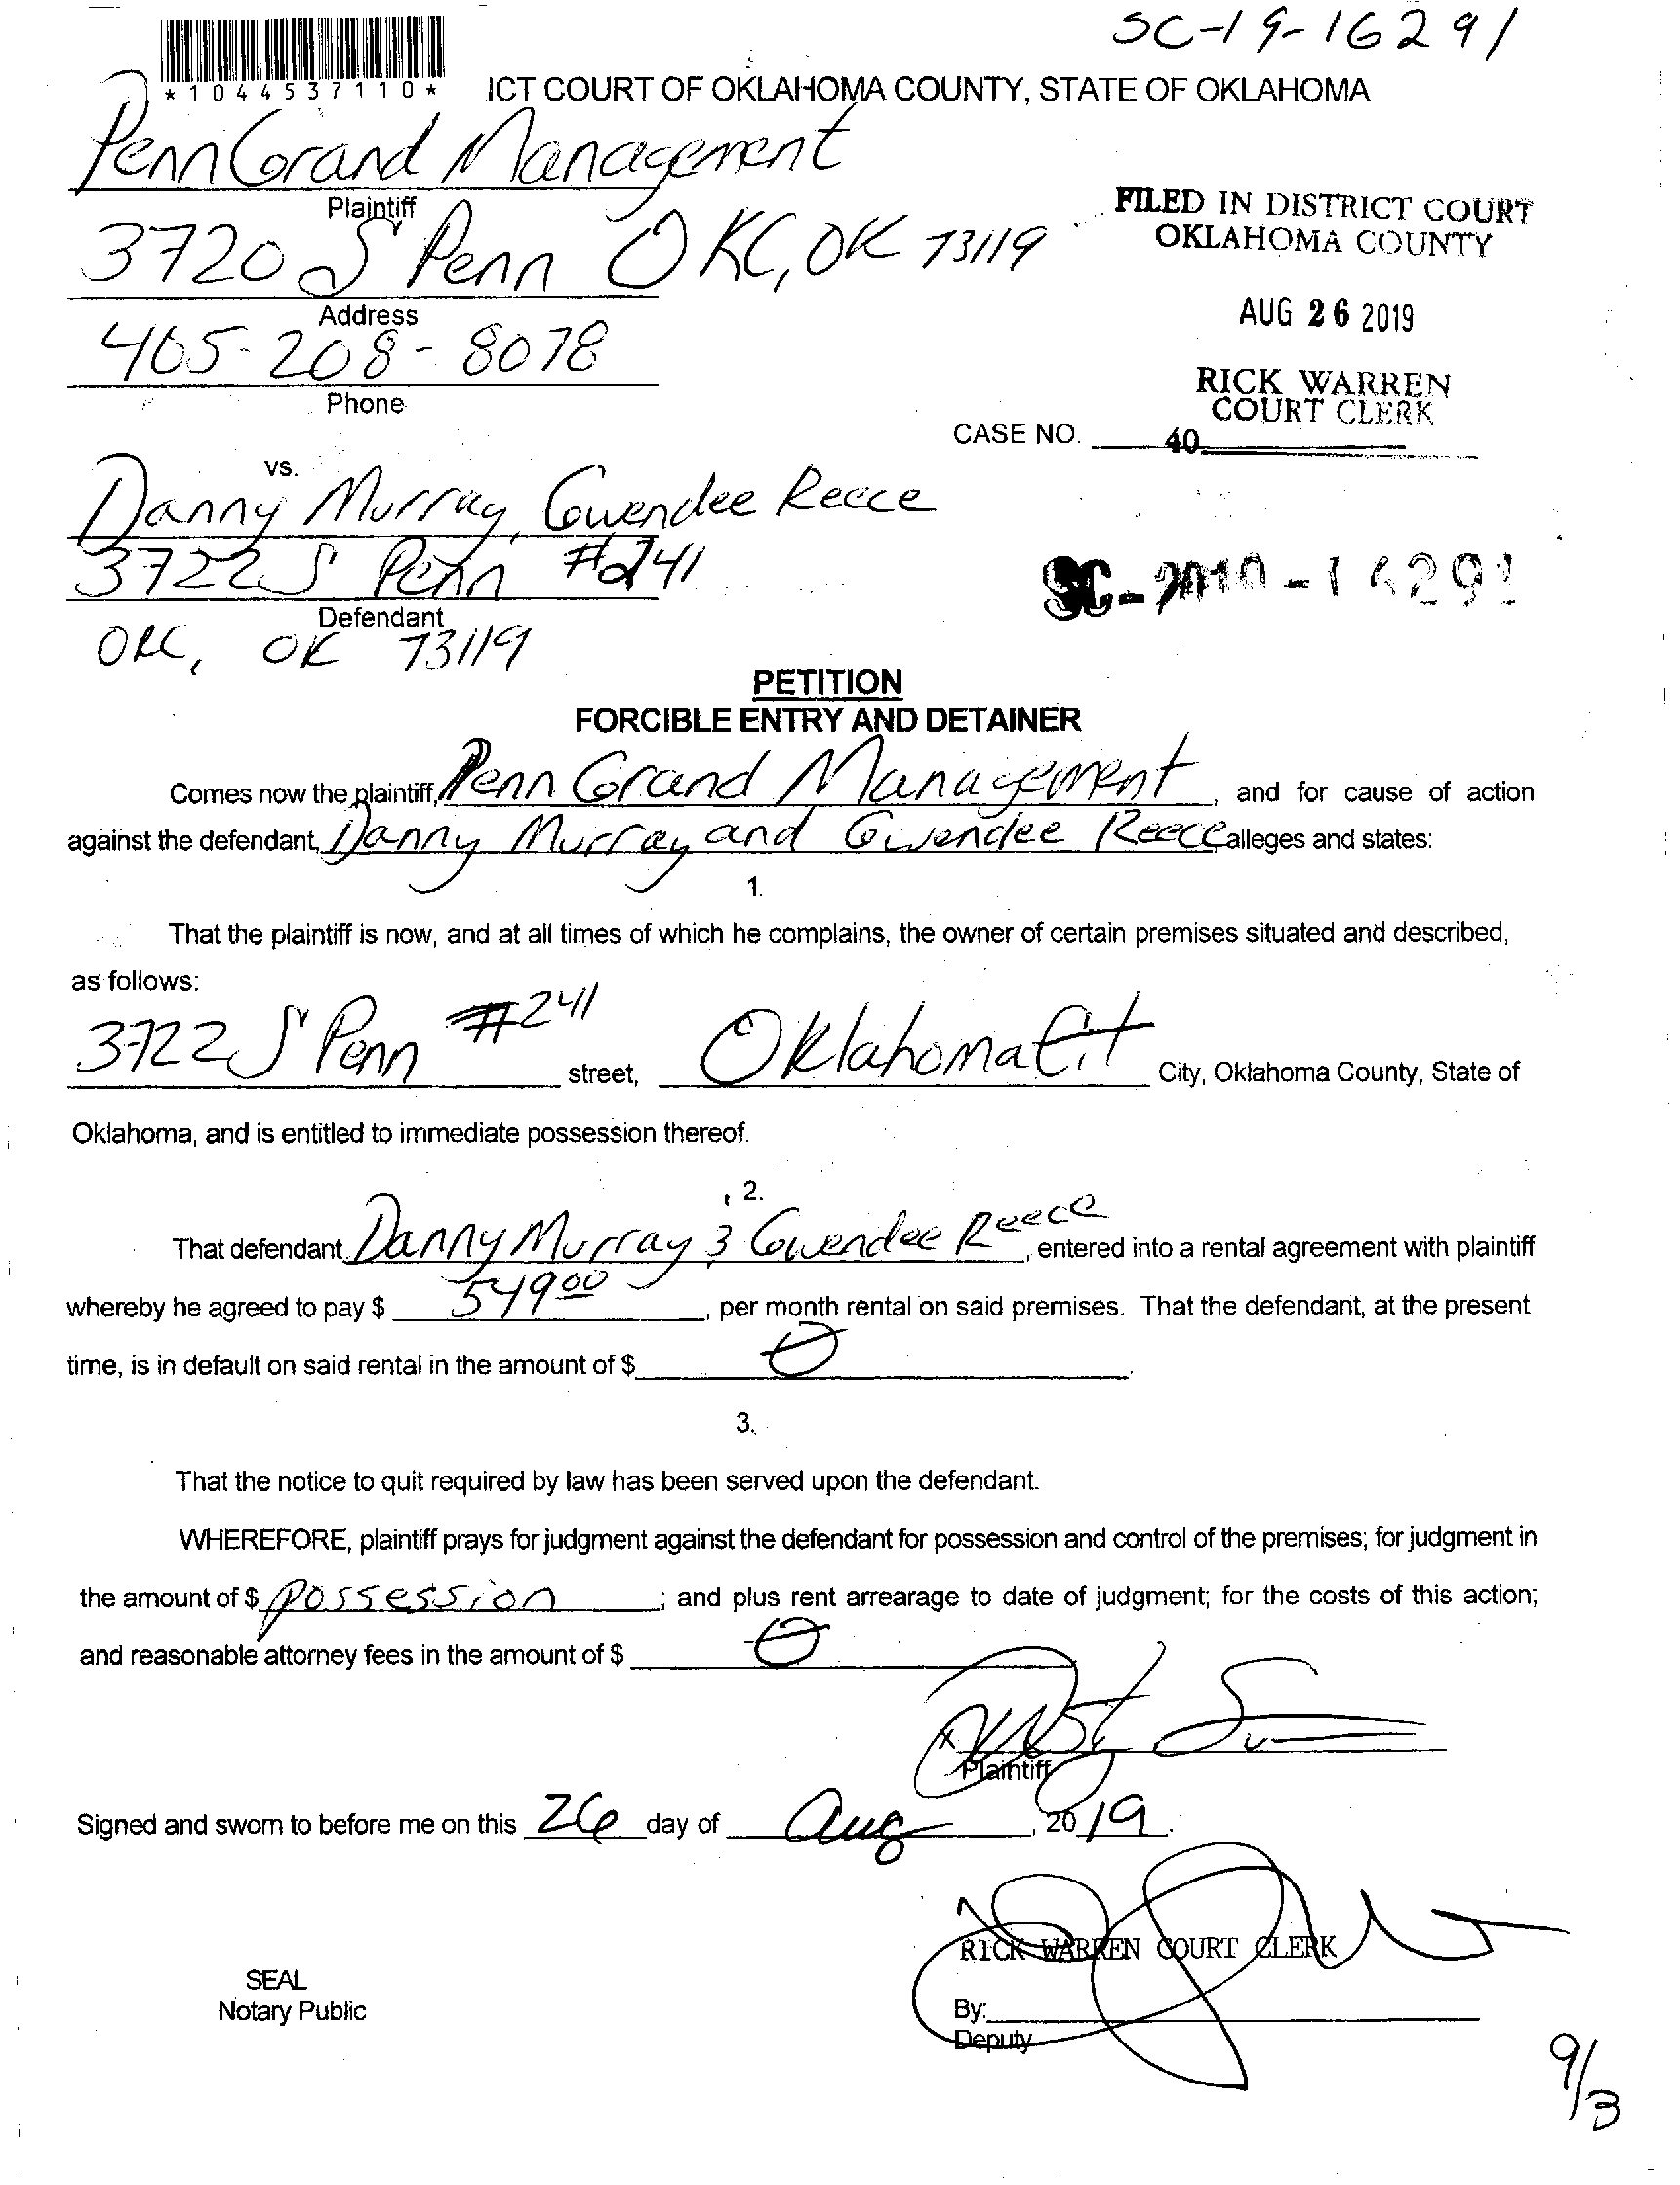 SC-19-16291
*1044537110*
ICT COURT OF OKLAHOMA COUNTY, STATE OF OKLAHOMA
Penn Grand Management
Plaintiff
3720 S Penn OKC, OK 73119
Address
405-208-8078
Phone
FILED IN DISTRICT COURT
OKLAHOMA COUNTY
AUG 26 2019
RICK WARREN
COURT CLERK
CASE NO. 40
vs.
Danny Murray, Gwendee Reece
3722 S Penn #241
Defendant
OKC, OK 73119
SC-2019-16291
PETITION
FORCIBLE ENTRY AND DETAINER
Comes now the plaintiff, Penn Grand Management, and for cause of action
against the defendant, Danny Murray and Gwendee Reece alleges and states:
1.
That the plaintiff is now, and at all times of which he complains, the owner of certain premises situated and described,
as follows:
3722 S Penn #241 street, Oklahoma Cit City, Oklahoma County, State of
Oklahoma, and is entitled to immediate possession thereof.
2.
That defendant Danny Murray & Gwendee Reece, entered into a rental agreement with plaintiff
whereby he agreed to pay $ 549 00, per month rental on said premises. That the defendant, at the present
time, is in default on said rental in the amount of $ 0.
3.
That the notice to quit required by law has been served upon the defendant.
WHEREFORE, plaintiff prays for judgment against the defendant for possession and control of the premises; for judgment in
the amount of $ possession; and plus rent arrearage to date of judgment; for the costs of this action;
and reasonable attorney fees in the amount of $ 0
x
Plaintiff
Signed and sworn to before me on this 26 day of Aug, 2019.
RICK WARREN COURT CLERK
SEAL
Notary Public
By:
Deputy
9/3